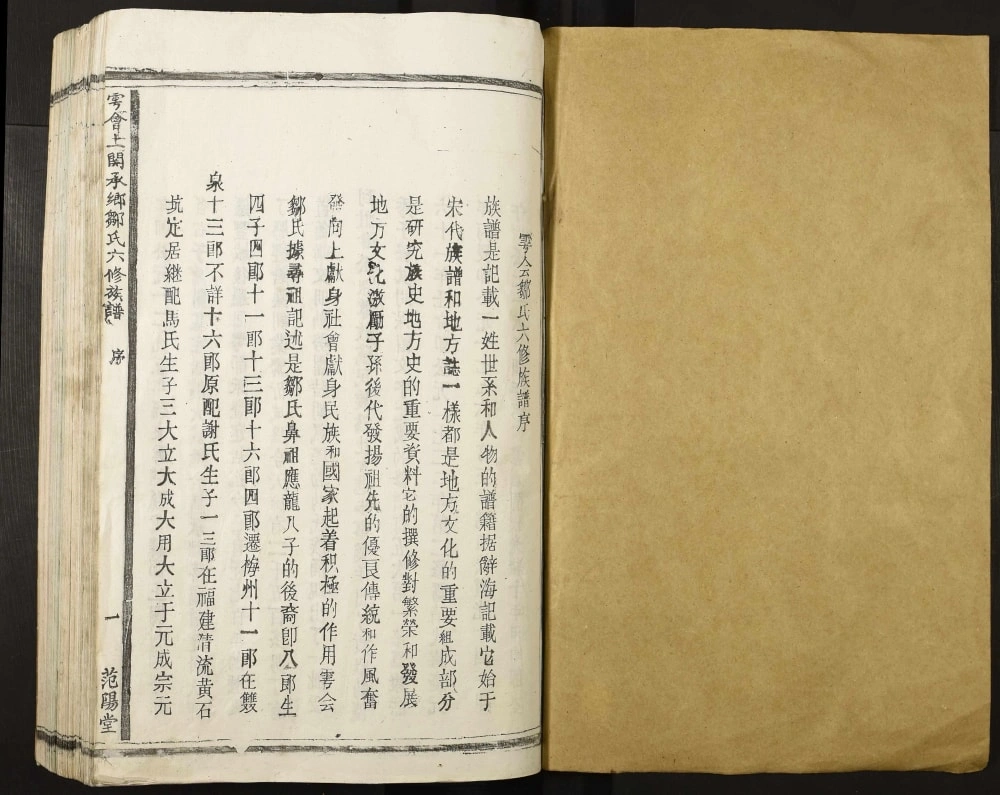 雩會鄒氏六修族譜序
族譜是記載一姓世系和人物的譜籍据辭海記載它始于
宋代族譜和地方誌一樣都是地方文化的重要組成部分
是研究族史地方史的重要資料它的撰修對繁荣和發展
地方文化激勵子孫後代發揚祖先的優良傳統和作風奮
發向上獻身社會獻身民族和國家起着积極的作用雩会
鄒氏據尋祖記述是鄒氏鼻祖應龍八子的後裔卽八郎生
四子四郎十一郎十三郎十六郎四郎遷梅州十一郎在雙
泉十三郎不詳十六郎原配謝氏生子一三郎在福建清流黄石
坑定居继配馬氏生子三大立大成大用大立于元成宗元
雩會土閙承鄉鄒氏六修族譜
序
一
范陽堂